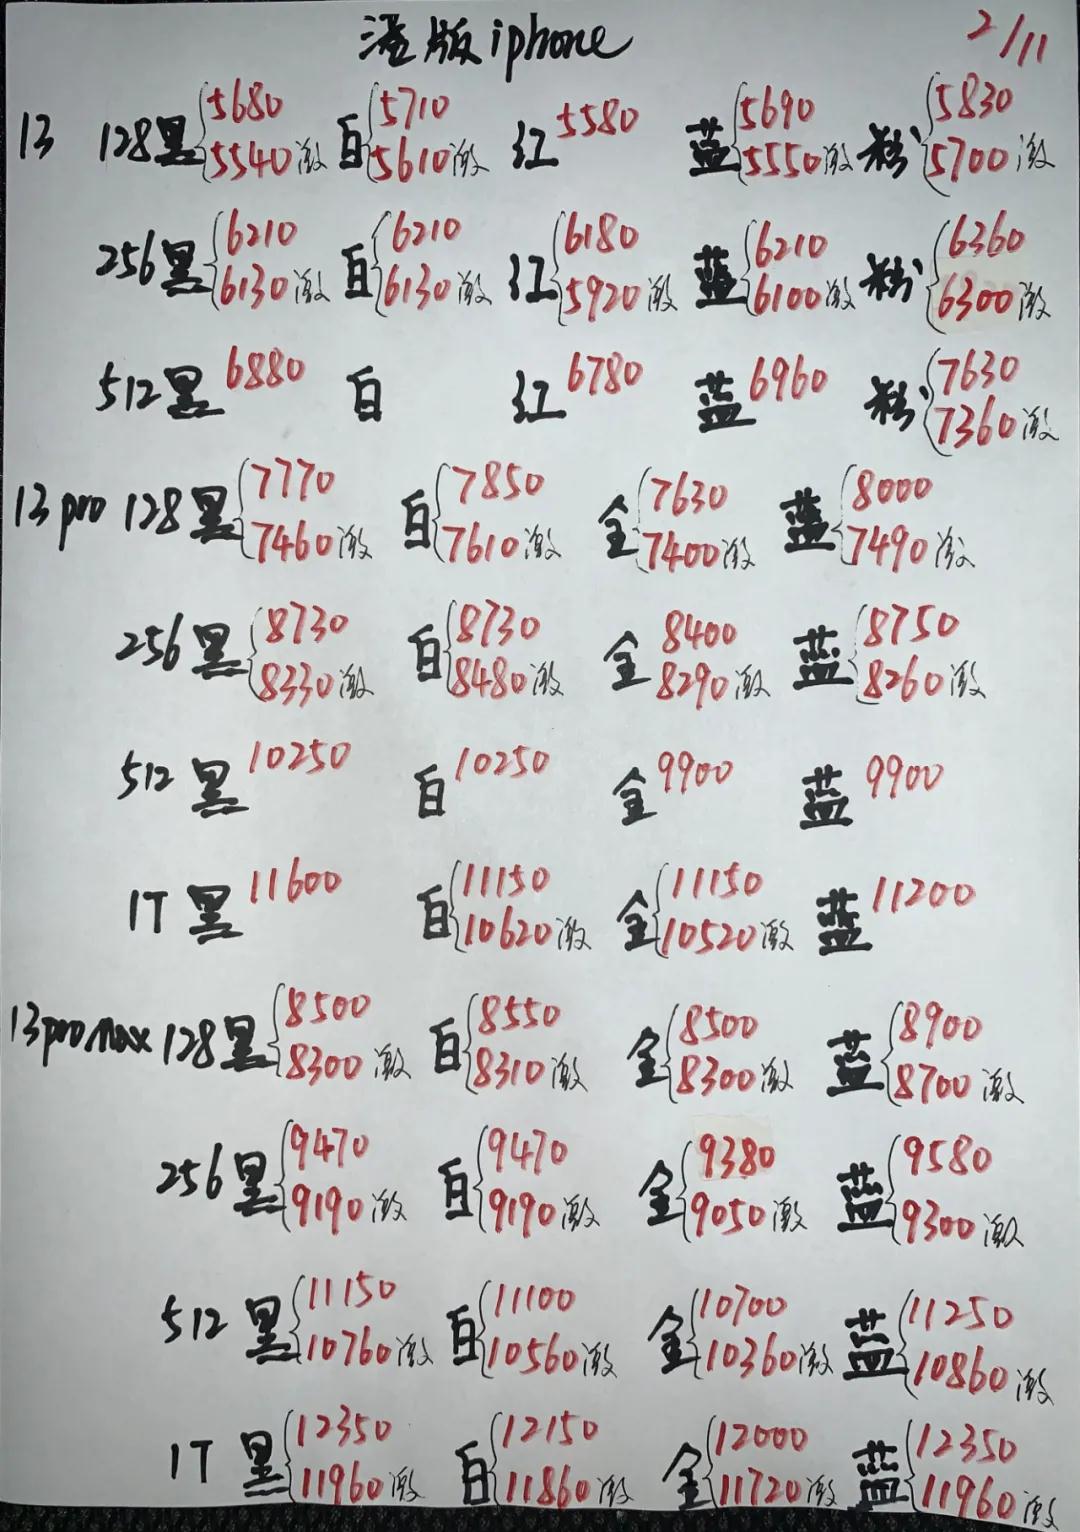 港版iphone 2/11
13 128黑{5680 5540激 白{5710 5610激 红5580 蓝{5690 5550激 粉{5830 5700激
256黑{6210 6130激 白{6210 6130激 红{6180 5920激 蓝{6210 6100激 粉{6360 6300激
512黑6880 白 红6780 蓝6960 粉{7630 7360激
13pro 128黑{7770 7460激 白{7850 7610激 金{7630 7400激 蓝{8000 7490激
256黑{8730 8330激 白{8730 8480激 金8400 8290激 蓝{8750 8260激
512黑10250 白10250 金9900 蓝9900
1T黑11600 白{11150 10620激 金{11150 10520激 蓝11200
13promax 128黑{8500 8300激 白{8550 8310激 金{8500 8300激 蓝{8900 8700激
256黑{9470 9190激 白{9470 9190激 金{9380 9050激 蓝{9580 9300激
512黑{11150 10760激 白{11100 10560激 金{10700 10360激 蓝{11250 10860激
1T黑{12350 11960激 白{12150 11860激 金{12000 11720激 蓝{12350 11960激